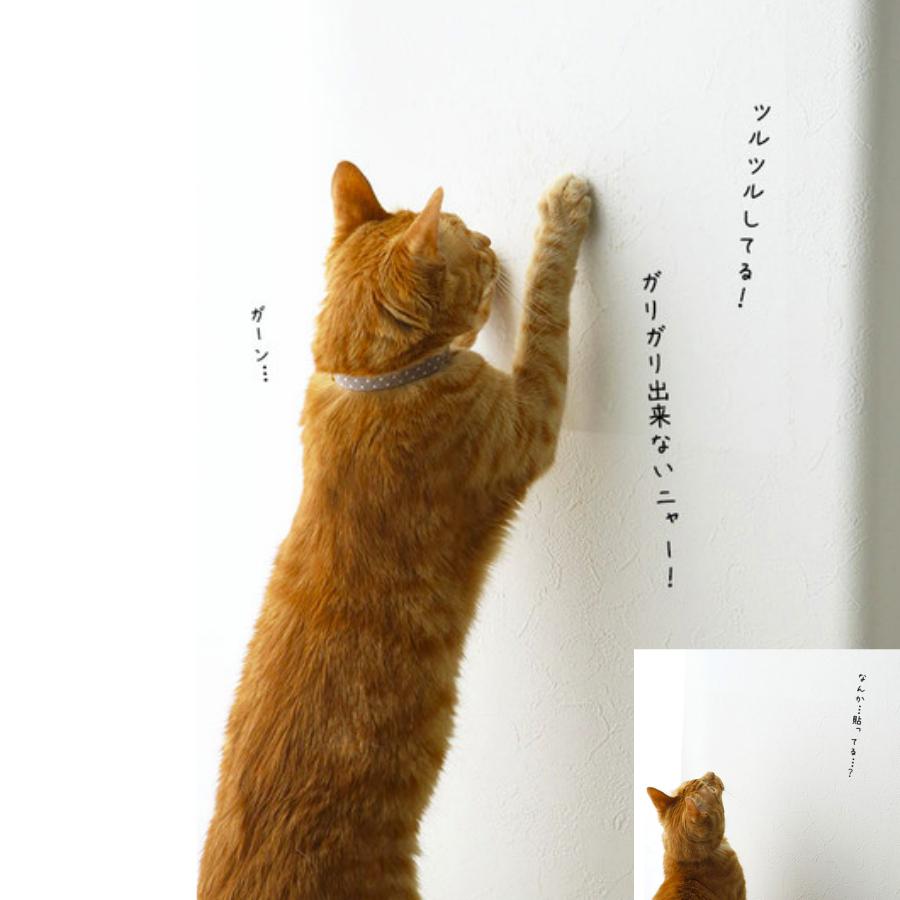 ツルツルしてる！
ガリガリ出来ないニャー！
ガーン…
なんか…貼ってる…？